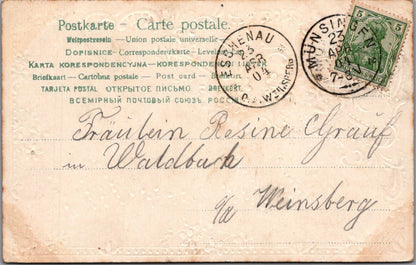 Postkarte – Carte postale.
Weltpostverein – Union postale universelle –
DOPISNICE – Correspondenzkarte – Levelez
KARTA KORESPONDENCYJNA – KORESPONDENČNÍ
Briefkaart – Cartolina postale – Post card – 
TARJETA POSTAL – ОТКРЫТОЕ ПИСЬМО – BREFKORT.
ВСЕМІРНЫЙ ПОЧТОВЫЙ СОЮЗ. РОССІЯ.
MÜNSINGEN
23
APR
7-8
5 5
ESCHENAU
23
APR
04
O.A. WEINSBERG
Fräulein Resine Grauf
in Waldbach
o/a Weinsberg